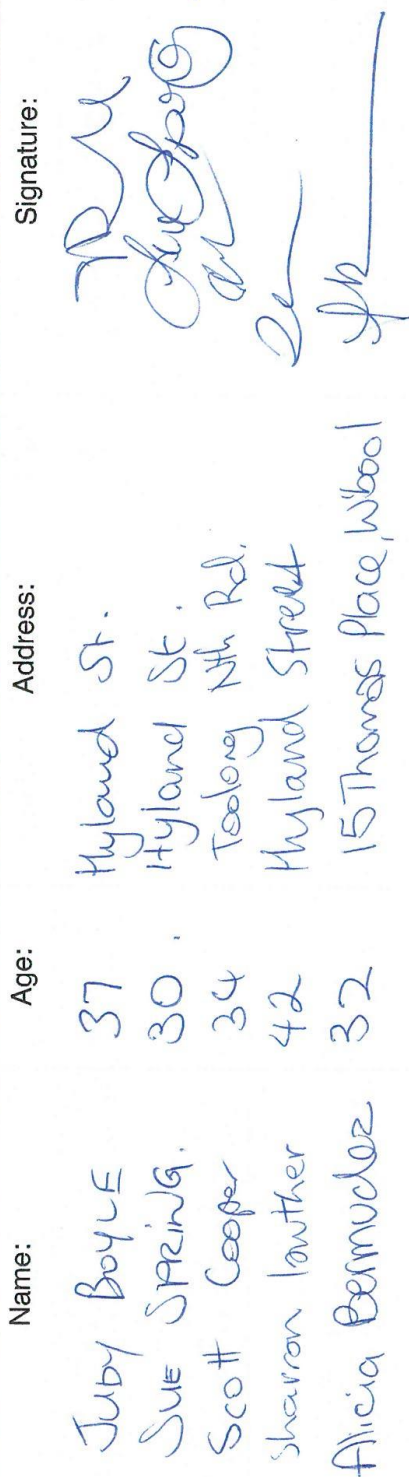 Name: Age: Address: Signature:
JUDY BOYLE 37 Hyland St.
SUE SPRING. 30. Hyland St.
Scott Cooper 34 Toolong Nth Rd.
Sharron lowther 42 Hyland Street
Alicia Bermudez 32 15 Thomas Place, W'bool